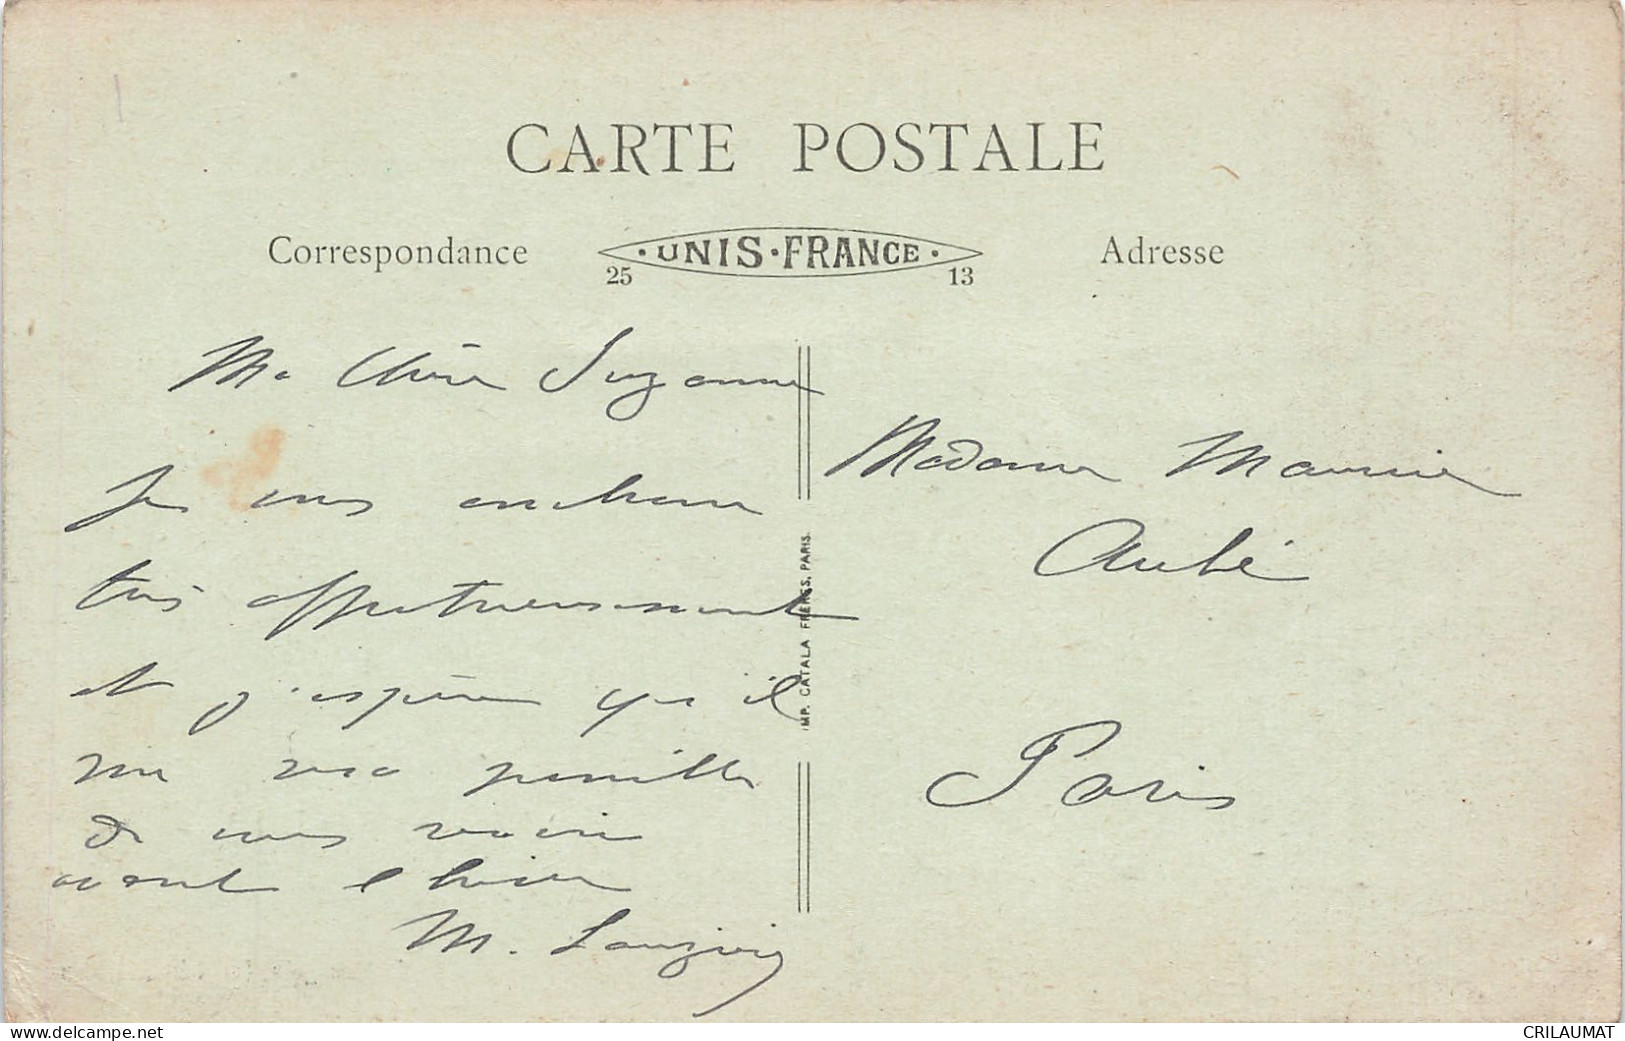 CARTE POSTALE
Correspondance
UNIS-FRANCE
25 13
Adresse
Ma Chère Suzanne
Je vous embrasse
très affectueusement
et j'espère qu'il
me sera possible
de vous revoir
avant l'hiver
M.
IMP. CATALA FRÈRES, PARIS.
Madame Maurice
Aubé
Paris
www.delcampe.net
CRILAUMAT